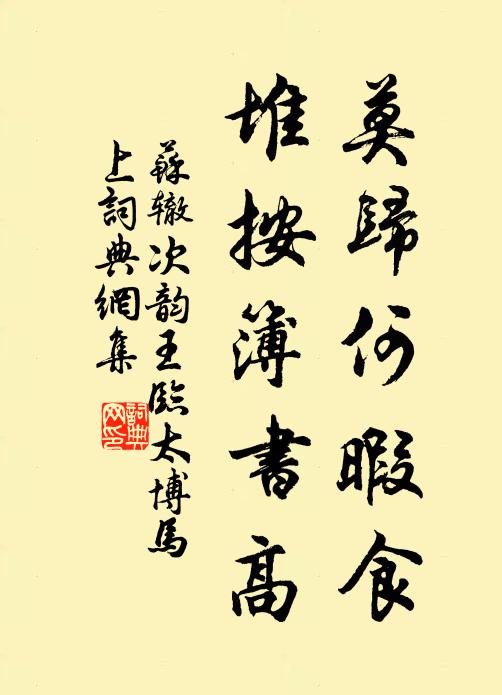 莫歸何暇食
堆按簿書高
蘇轍次韵王臨太博馬
上詞典網集
詞典
网印